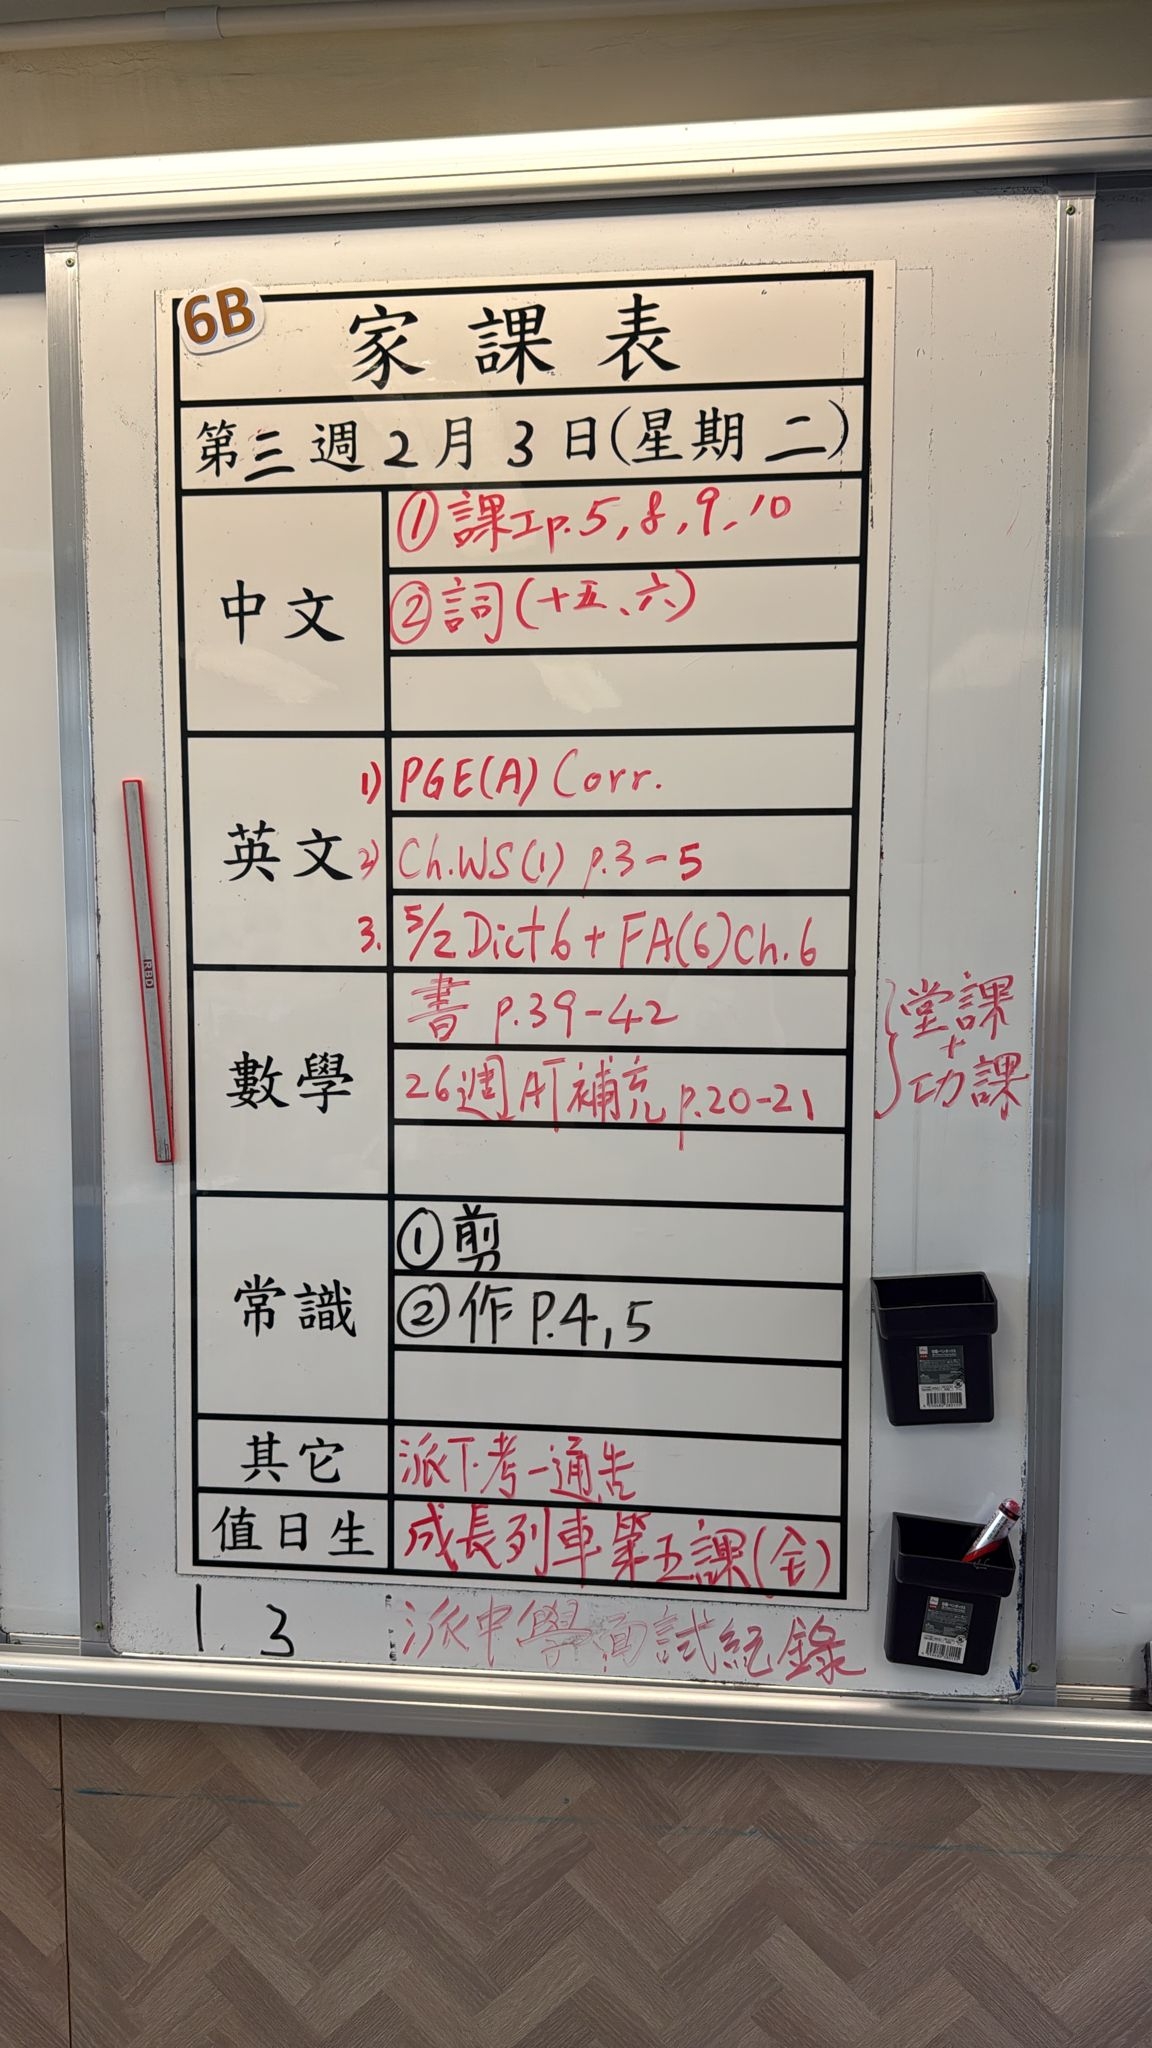 6B
家課表
第三週2月3日(星期二)
中文
①課工p.5,8,9,10
②詞(十五、六)
英文
1) PGE(A) Corr.
2) Ch.WS(1) p.3-5
3. 5/2 Dict 6 + FA(6) Ch.6
數學
書 p.39-42
26週AT補充 p.20-21
堂課
+
功課
常識
①剪
②作 P.4,5
其它
派下考一通告
值日生
成長列車第五課(全)
1 3
派中學面試紀錄
RBD